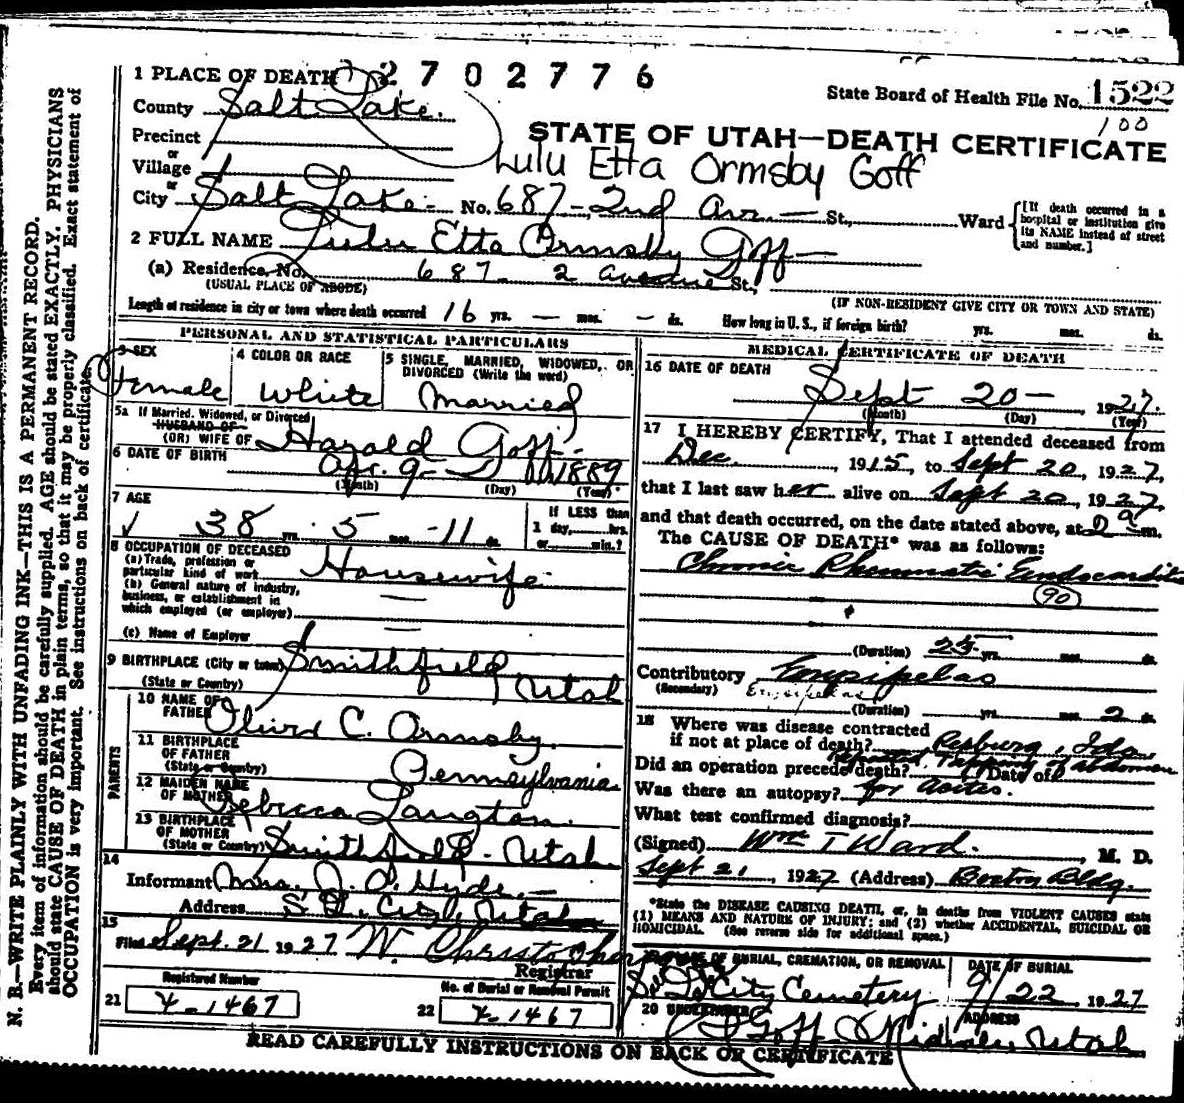 N. B.—WRITE PLAINLY WITH UNFADING INK—THIS IS A PERMANENT RECORD.
Every item of information should be carefully supplied. AGE should be stated EXACTLY. PHYSICIANS
should state CAUSE OF DEATH in plain terms, so that it may be properly classified. Exact statement of
OCCUPATION is very important. See instructions on back of certificate.
1 PLACE OF DEATH 2702776
State Board of Health File No. 1522
100
County Salt Lake.
STATE OF UTAH—DEATH CERTIFICATE
Precinct
or
Lulu Etta Ormsby Goff
Village
or
City Salt Lake - No. 687-2nd Ave— St., Ward
[If death occurred in a
hospital or institution give
its NAME instead of street
and number.]
2 FULL NAME Lulu Etta Ormsby Goff—
(a) Residence, No. 687 - 2 avenue St.,
(USUAL PLACE OF ABODE)
(IF NON-RESIDENT GIVE CITY OR TOWN AND STATE)
Length of residence in city or town where death occurred 16 yrs. — mos. — ds. How long in U. S., if foreign birth? yrs. mos. ds.
PERSONAL AND STATISTICAL PARTICULARS
3 SEX
Female
4 COLOR OR RACE
White
5 SINGLE, MARRIED, WIDOWED, OR
DIVORCED (Write the word)
Married
5a If Married, Widowed, or Divorced
HUSBAND OF
(OR) WIFE OF Harold Goff-
6 DATE OF BIRTH Apr. 9- 1889
(Month) (Day) (Year)
7 AGE
38 yrs. 5 mos. -11 ds.
If LESS than
1 day, hrs.
or min.?
8 OCCUPATION OF DECEASED
(a) Trade, profession or
particular kind of work Housewife
(b) General nature of industry,
business, or establishment in
which employed (or employer)
(c) Name of Employer —
9 BIRTHPLACE (City or town) Smithfield
(State or Country) Utah
PARENTS
10 NAME OF
FATHER Oliver C. Ormsby.
11 BIRTHPLACE
OF FATHER
(State or Country) Pennsylvania
12 MAIDEN NAME
OF MOTHER Rebecca Langton.
13 BIRTHPLACE
OF MOTHER
(State or Country) Smithfield - Utah
14
Informant Mrs. Hyde,-
Address S. L. City, Utah
15
Filed Sept. 21 1927 W. Christopherson
Registrar
Registered Number
21 1467
No. of Burial or Removal Permit
22 1467
MEDICAL CERTIFICATE OF DEATH
16 DATE OF DEATH
Sept 20—, 1927.
(Month) (Day) (Year)
17 I HEREBY CERTIFY, That I attended deceased from
Dec., 1915, to Sept 20, 1927,
that I last saw her alive on Sept 20, 1927,
and that death occurred, on the date stated above, at 2 a m.
The CAUSE OF DEATH* was as follows:
Chronic Rheumatic Endocarditis
90
(Duration) 25 yrs. mos. ds.
Contributory Erysipelas
(Secondary) Erysipelas
(Duration) yrs. mos. 2 ds.
18 Where was disease contracted
if not at place of death? Rexburg, Ida
Did an operation precede death? Repeated Tapping of abdomen Date of
Was there an autopsy? for Acites.
What test confirmed diagnosis?
(Signed) Wm T Ward., M. D.
Sept 21, 1927 (Address) Boston Bldg.
*State the DISEASE CAUSING DEATH, or, in deaths from VIOLENT CAUSES state
(1) MEANS AND NATURE OF INJURY; and (2) whether ACCIDENTAL, SUICIDAL OR
HOMICIDAL. (See reverse side for additional space.)
PLACE OF BURIAL, CREMATION, OR REMOVAL
S. L. City Cemetery
DATE OF BURIAL
9/22, 1927
20 UNDERTAKER
Goff
ADDRESS
Midvale, Utah
READ CAREFULLY INSTRUCTIONS ON BACK OF CERTIFICATE